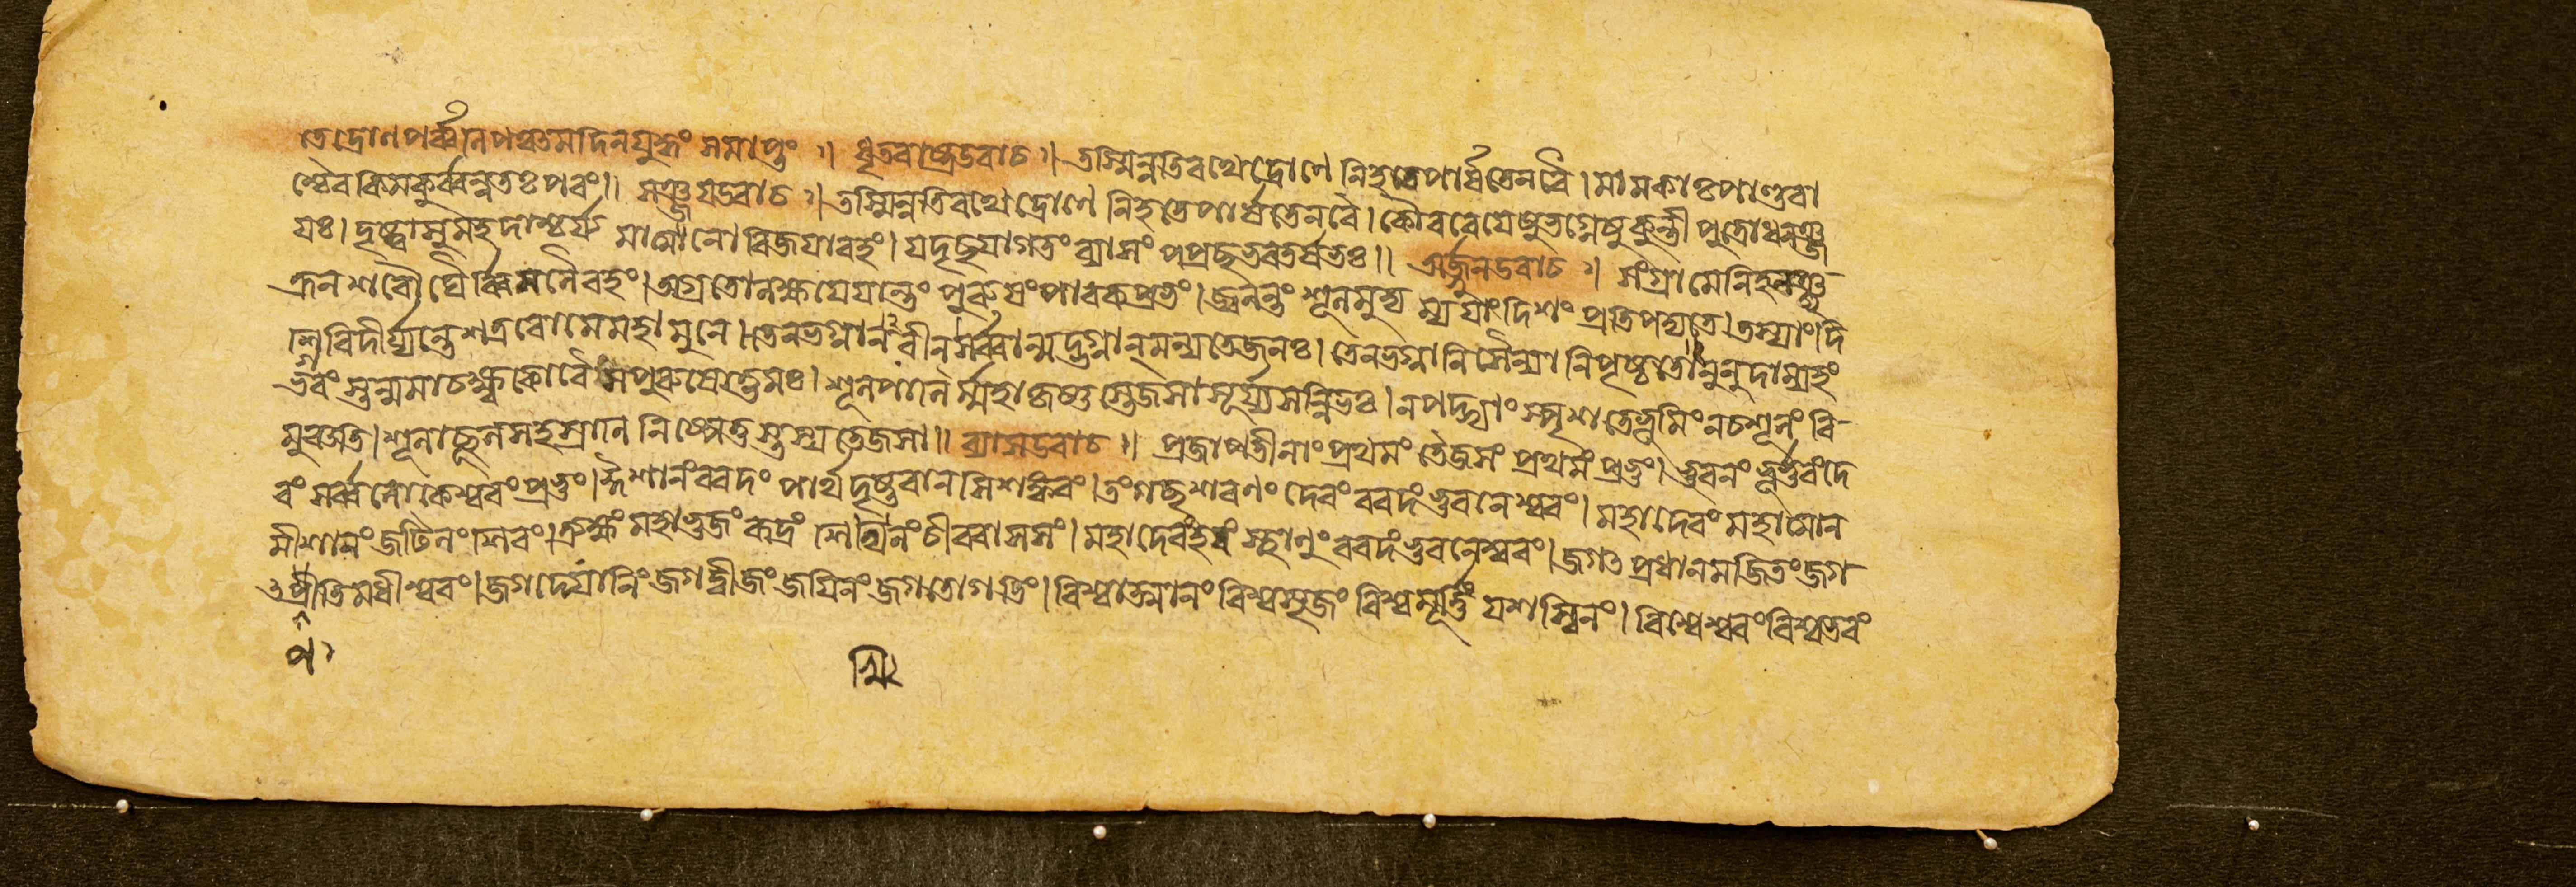 তে দ্রোণপর্ব্বণি পঞ্চমদিনযুদ্ধং সমাপ্তং ॥ ধৃতরাষ্ট্র উবাচ ॥ তস্মিন্নতিরথে দ্রোণে নিহতে পার্ষতেন বৈ । মামকাঃ পাণ্ডবা
শ্চৈব কিমকুর্ব্বন্নতঃ পরং ॥ সঞ্জয় উবাচ ॥ তস্মিন্নতিরথে দ্রোণে নিহতে পার্ষতেন বৈ । কৌরবেয়েষু ভগ্নেষু কুন্তীপুত্রো ধনঞ্জ
যঃ । দৃষ্ট্বা সুমহদাশ্চর্য্য মাত্মনো বিজয়াবহং । যদৃছয়াগতং ব্যাসং পপ্রছ ভরতর্ষভঃ ॥ অর্জ্জুন উবাচ ॥ সংগ্রামে নিহনঞ্ছ
ত্রূন শরৌঘৈর্ব্বিমলৈরহং । অগ্রতো লক্ষয়ে যান্তং পুরুষং পাবকপ্রভং । জ্বলন্তং শূলমুদ্যম্য যাং দিশং প্রতিপদ্যতে । তস্যাং দি
শি বিদীর্য্যন্তে শত্রবো মে মহামুনে । তেন ভগ্নানরীন সর্ব্বান্মদ্ভগ্নান্মন্যতে জনঃ । তেন ভগ্নানি সৈন্যানি পৃষ্ঠতো নুনুদাম্যহং
ভগবংস্তন্মমাচক্ষ্ব কো বৈ স পুরুষোত্তমঃ । শূলপাণির্ম্মহাবাহুস্তেজসা সূর্য্যসন্নিভঃ । ন পদ্ভ্যাং স্পৃশতে ভূমিং ন চ শূলং বি
মুঞ্চতি । শূলাছূলসহস্রাণি নিষ্পেতুস্তস্য তেজসা ॥ ব্যাস উবাচ ॥ প্রজাপতীনাং প্রথমং তৈজসং প্রথমং প্রভুং । ভুবনং ভূর্ভুবং দে
বং সর্ব্বলোকেশ্বরং প্রভুং । ঈশানং বরদং পার্থ দৃষ্টবানসি শঙ্করং । তং গছ শরণং দেবং বরদং ভুবনেশ্বরং । মহাদেবং মহাত্মান
মীশানং জটিলং শিবং । ত্র্যক্ষং মহাভুজং রুদ্রং শিখিনং চীরবাসসং । মহাদেবং হরং স্থাণুং বরদং ভুবনেশ্বরং । জগৎপ্রধানমজিতং জগ
ৎপ্রীতিমধীশ্বরং । জগদ্যোনিং জগদ্বীজং জয়িনং জগতো গতিং । বিশ্বাত্মানং বিশ্বসৃজং বিশ্বমূর্ত্তিং যশস্বিনং । বিশ্বেশ্বরং বিশ্বতরং